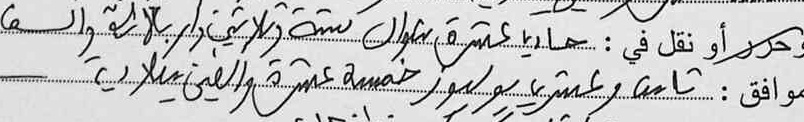 وحرر أو نقل في : حادي عشرة شوال ستة وثلاثين وأربعمائة وألف
موافق : ثامن وعشرين يوليوز خمسة عشرة وألفين ميلادية